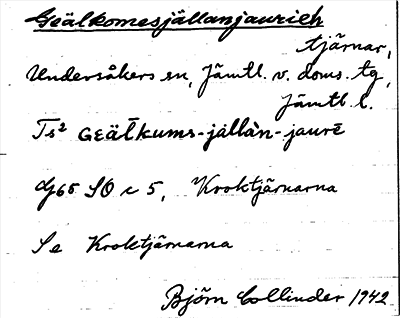 Geälkomesjällanjaurieh
tjärnar,
Undersåkers sn, Jämtl. v. doms. tg,
Jämtl. l.
Ts² Geälkums-jällàn-jaurē
G65 SO c 5, Kroktjärnarna
Se Kroktjärnarna
Björn Collinder 1942